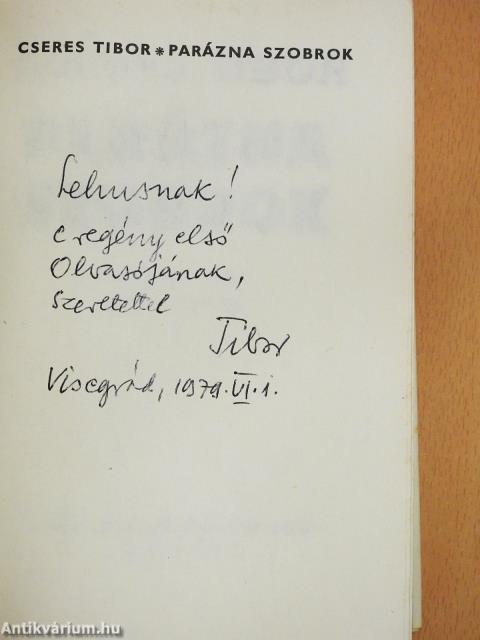 CSERES TIBOR * PARÁZNA SZOBROK
Lelusnak!
e regény első
Olvasójának,
szeretettel
Tibor
Visegrád, 1979. VI. 1.
Antikvárium.hu